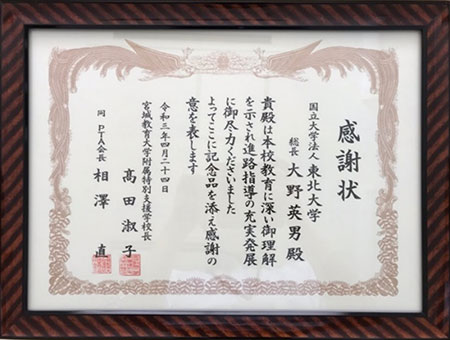 感謝状
国立大学法人 東北大学
総長 大野英男 殿
貴殿は本校教育に深い御理解
を示され進路指導の充実発展
に御尽力くださいました
よってここに記念品を添え感謝の
意を表します
令和三年四月二十四日
宮城教育大学附属特別支援学校長
髙田淑子
同 PTA会長
相澤直